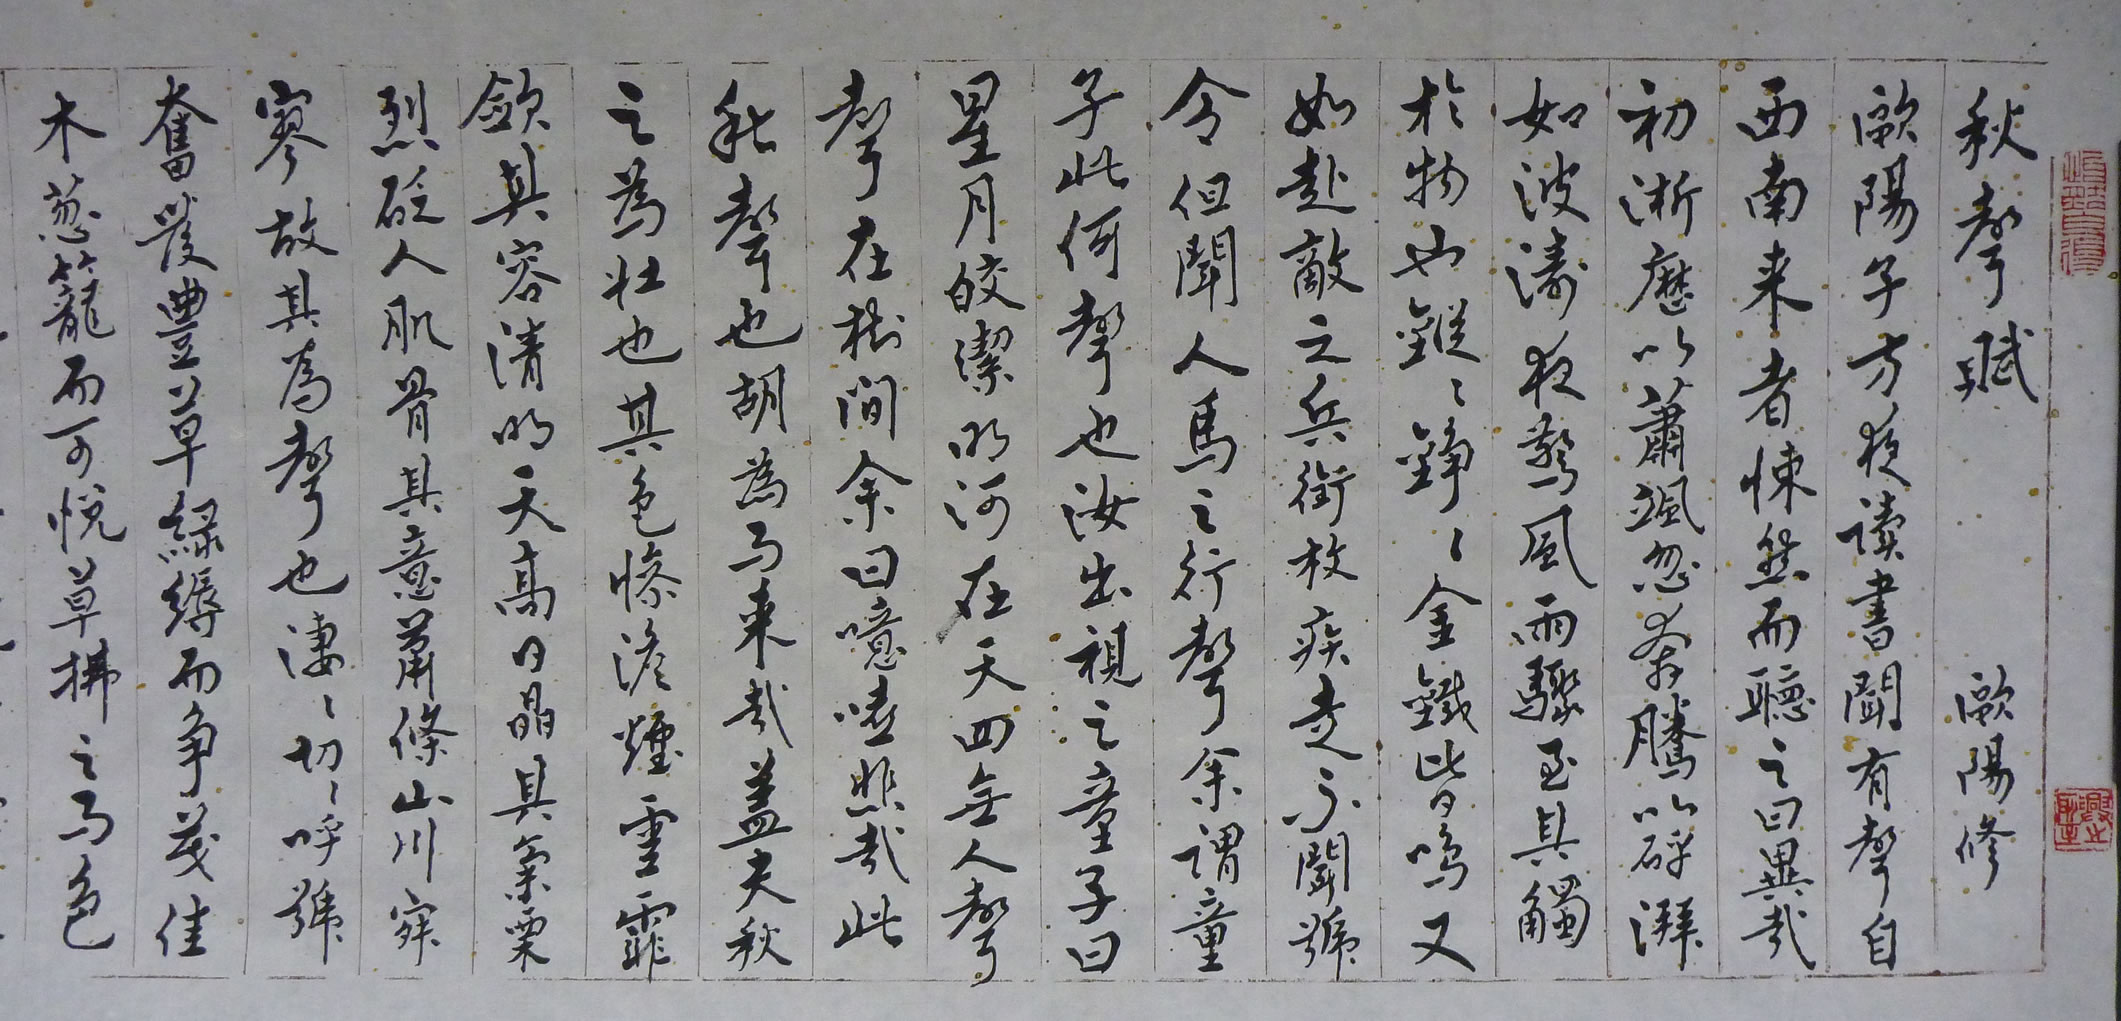 秋聲賦 歐陽修
歐陽子方夜读書聞有聲自
西南来者悚然而聽之曰異哉
初淅歷以蕭颯忽奔騰以砰湃
如波濤夜驚風雨驟至其觸
於物也鏦〻錚〻金鐵皆鳴又
如赴敵之兵銜枚疾走不聞號
令但聞人馬之行聲余謂童
子此何聲也汝出視之童子曰
星月皎潔明河在天四無人聲
聲在樹間余曰噫嘻悲哉此
秋聲也胡為乎来哉蓋夫秋
之為狀也其色慘澹煙霏雲
歛其容清明天高日晶其氣栗
烈砭人肌骨其意蕭條山川寂
寥故其為聲也淒〻切〻呼號
奮發豐草綠縟而争茂佳
木葱籠而可悦草拂之而色